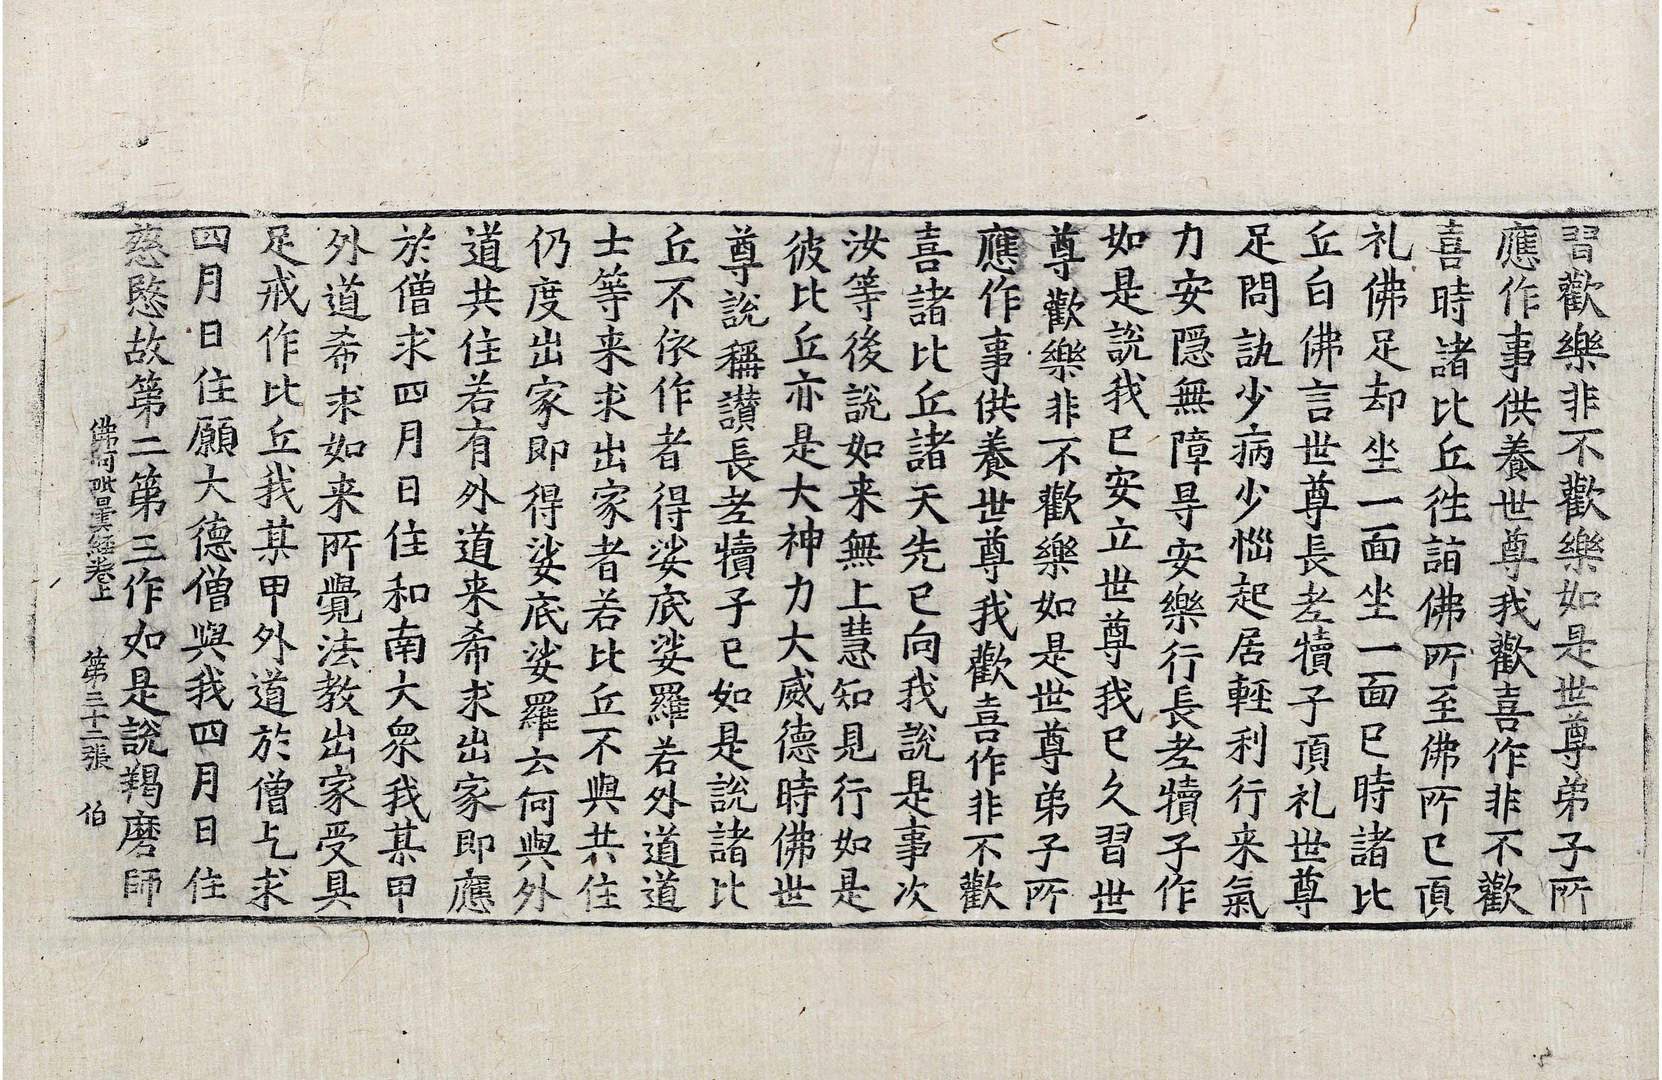 習歡樂非不歡樂如是世尊弟子所
應作事供養世尊我歡喜作非不歡
喜時諸比丘徃詣佛所至佛所已頂
礼佛足却坐一面坐一面已時諸比
丘白佛言世尊長老犢子頂礼世尊
足問訊少病少惱起居輕利行来氣
力安隠無障㝵安樂行長老犢子作
如是說我已安立世尊我已久習世
尊歡樂非不歡樂如是世尊弟子所
應作事供養世尊我歡喜作非不歡
喜諸比丘諸天先已向我說是事次
汝等後說如来無上慧知見行如是
彼比丘亦是大神力大威德時佛世
尊說稱讃長老犢子已如是說諸比
丘不依作者得娑底娑羅若外道道
士等来求出家者若比丘不與共住
仍度出家即得娑底娑羅云何與外
道共住若有外道来希求出家即應
於僧求四月日住和南大衆我某甲
外道希求如来所覺法教出家受具
足戒作比丘我某甲外道於僧乞求
四月日住願大德僧與我四月日住
慈愍故第二第三作如是說羯磨師
佛阿毗曇経卷上 第三十二張 伯